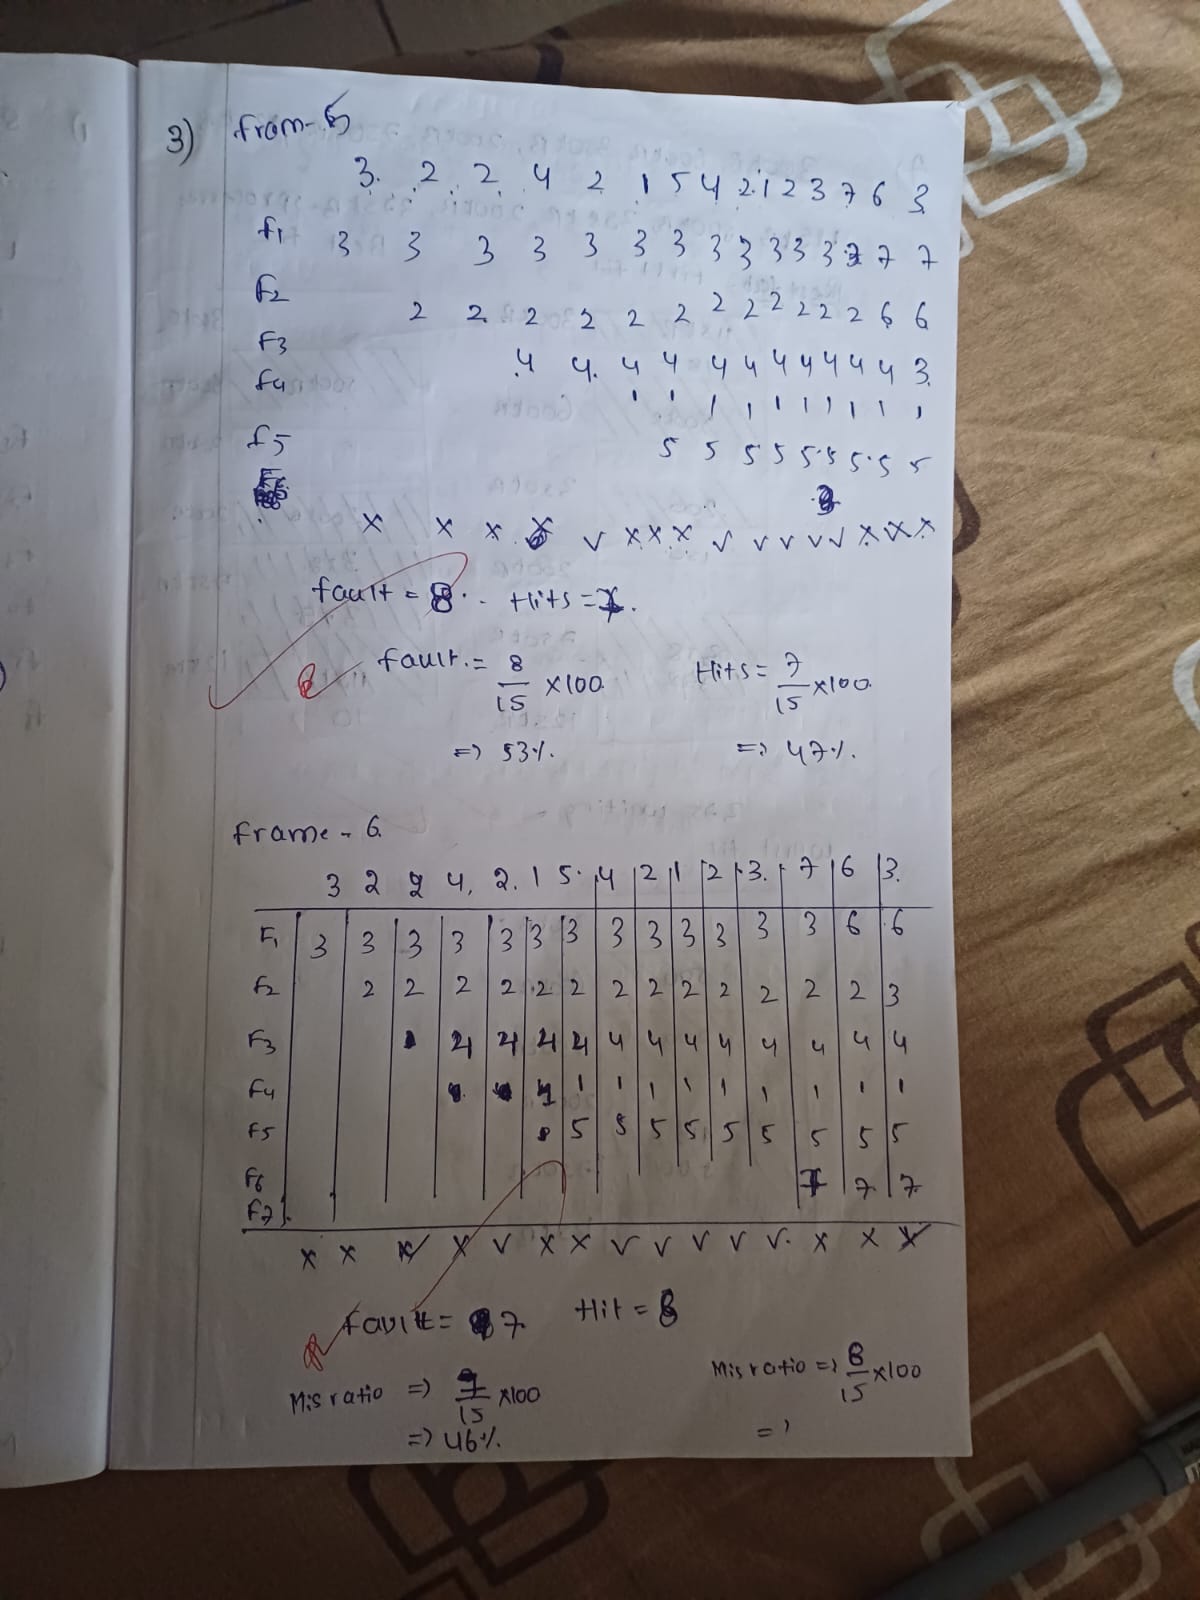 3) from-5
3. 2 2 4 2 1 5 4 2 1 2 3 7 6 3
f1 3 3 3 3 3 3 3 3 3 3 3 3 3 7 7
f2 2 2 2 2 2 2 2 2 2 2 2 2 6 6
F3 4 4. 4 4 4 4 4 4 4 4 4 3.
f4 1 1 1 1 1 1 1 1 1 1
f5 5 5 5 5 5 5 5 5 5
x x x x ✓ x x x ✓ ✓ ✓ ✓ ✓ x x x
fault = 8. Hits = 7.
fault. = 8/15 x100 Hits = 7/15 x100
=> 53%. => 47%.
frame - 6.
3 2 2 4, 2. 1 5. 4 2 1 2 3. 7 6 3.
F1 3 3 3 3 3 3 3 3 3 3 3 3 3 6 6
f2 2 2 2 2 2 2 2 2 2 2 2 2 2 3
F3 4 4 4 4 4 4 4 4 4 4 4 4
F4 1 1 1 1 1 1 1 1 1 1
F5 5 5 5 5 5 5 5 5 5
F6 7 7 7
F7
x x x x ✓ x x ✓ ✓ ✓ ✓ ✓. x x x
fault = 7 Hit = 8
Mis ratio => 7/15 x100 Mis ratio => 8/15 x100
=> 46%. =>